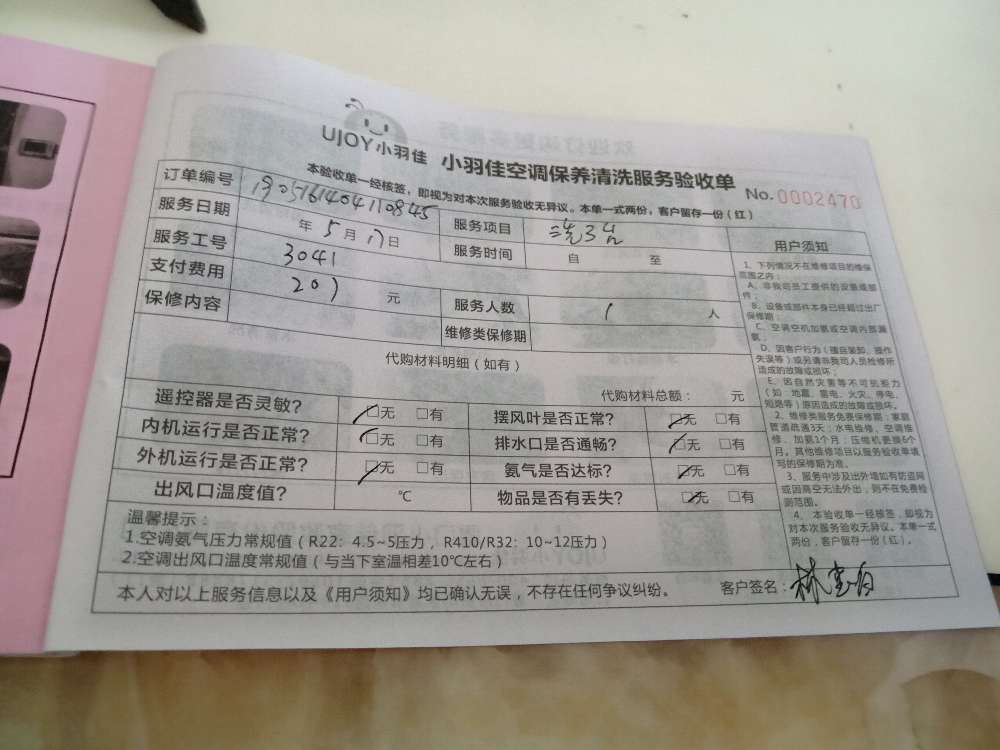 UJOY小羽佳 小羽佳空调保养清洗服务验收单
本验收单一经核签，即视为对本次服务验收无异议。本单一式两份，客户留存一份（红）
No. 0002470
订单编号 1905161404110845
服务项目
服务日期 年 5 月 17 日
服务时间 自 至
服务工号 3041
支付费用 207 元
服务人数 1 人
保修内容
维修类保修期
代购材料明细（如有）
代购材料总额： 元
遥控器是否灵敏？ □无 □有
摆风叶是否正常？ □无 □有
内机运行是否正常？ □无 □有
排水口是否通畅？ □无 □有
外机运行是否正常？ □无 □有
氨气是否达标？ □无 □有
出风口温度值？ ℃
物品是否有丢失？ □无 □有
温馨提示：
1.空调氨气压力常规值（R22：4.5~5压力，R410/R32：10~12压力）
2.空调出风口温度常规值（与当下室温相差10℃左右）
本人对以上服务信息以及《用户须知》均已确认无误，不存在任何争议纠纷。
客户签名：
用户须知
1、下列情况不在维修项目的维保
范围之内：
A、非我司员工提供的设备或部
件；
B、设备或部件本身已经超过出厂
保修期；
C、空调空机加氨或空调内部漏
氨；
D、因客户行为（擅自装卸、操作
失误等）或另请非我司人员检修所
造成的故障或损坏；
E、因自然灾害等不可抗拒力
（如：地震、雷电、火灾、停电、
短路等）原因造成的故障或损坏。
2、维修类服务免费保修期：家庭
管道疏通3天；水电维修、空调维
修、加氨1个月；压缩机更换6个
月。其他维修项目以服务验收单填
写的保修期为准。
3、服务中涉及出外墙如有防盗网
或因高空无法外出，则不在免费检
测范围。
4、本验收单一经核签，即视为
对本次服务验收无异议。本单一式
两份，客户留存一份（红）。